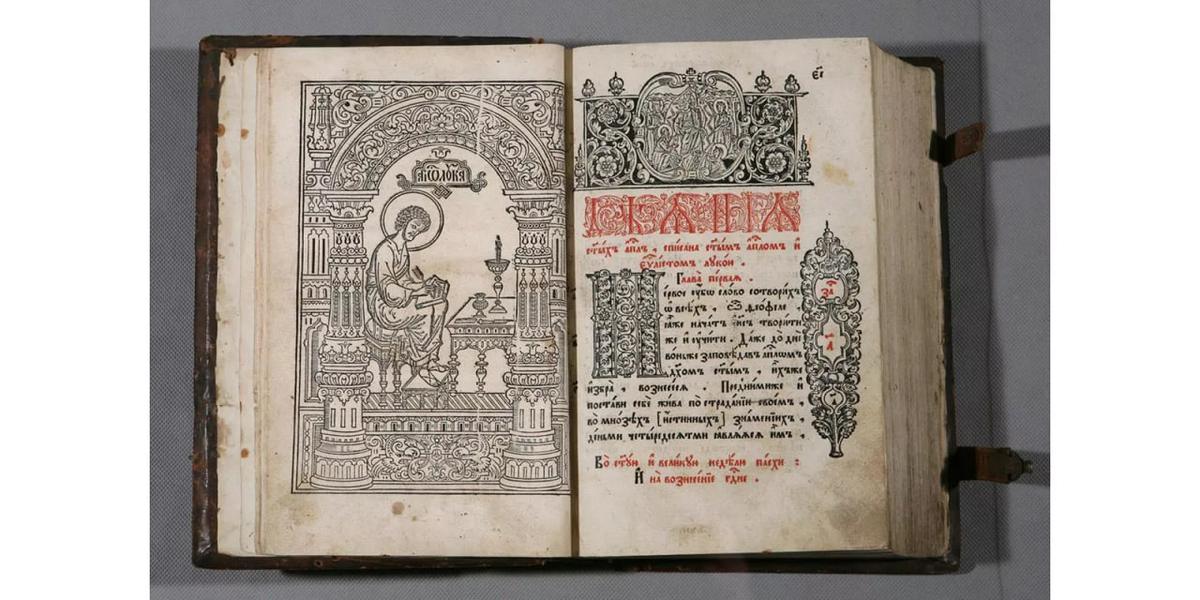 АП҃ОЛꙊКА
є҃і
ДѢѦНІѦ
ст҃ы́хъ а҆п҃лъ , спи́сана ст҃ы́мъ а҆п҃ломъ и҆
є҆ѵ҃лі́стомъ лꙋко́и .
Глава̀ пе́рваѧ .
Пе́рвое ᲂу҆́бѡ сло́во сотвори́хъ
ѡ҆ все́хъ , ѽ ѳео́филе
ꙗ҆́же нача́тъ і҆и҃съ твори́ти
же и҆ ᲂу҆чи́ти . Да́же до дн҃е
во́ньже заповѣ́давъ а҆п҃лѡмъ
дх҃омъ ст҃ы́мъ , и҆́хъже
и҆збра̀ , вознесе́сѧ . Пред̾ни́миже и҆
поста́ви себѐ жи́ва по страда́нїи свое́мъ ,
во мно́зѣхъ [и҆́стинныхъ] зна́менїихъ ,
де́ньми четы́редесѧтми ꙗ҆влѧ́ѧсѧ и҆̀мъ ,
за҃
а҃
Во ст҃ꙋ́ю и҆ вели́кꙋю недѣ́лю па́схи :
И҆ на вознесе́нїе гд҃не .